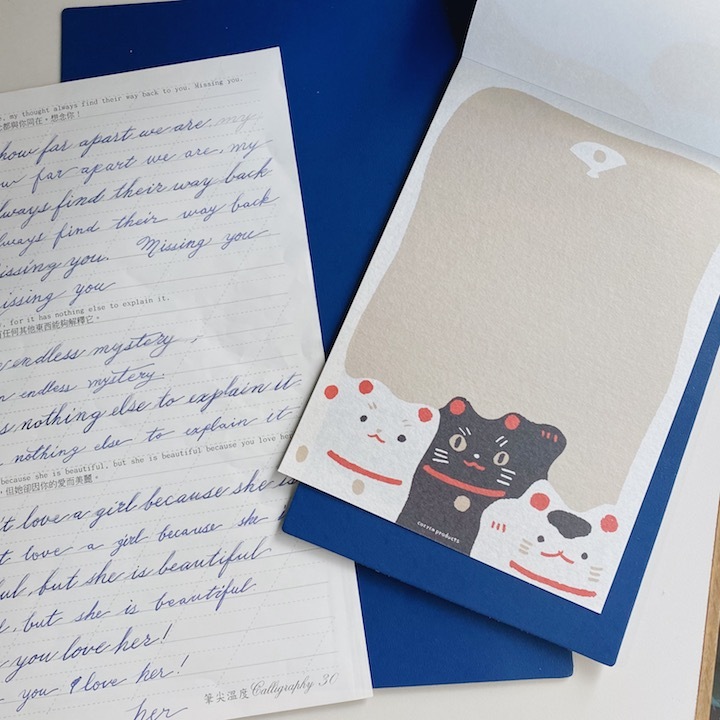 my thought always find their way back to you. Missing you.
都與你同在。想念你!
how far apart we are my
far apart we are, my
always find their way back
always find their way back
Missing you. Missing you
Missing you
for it has nothing else to explain it.
有任何其他東西能夠解釋它。
endless mystery,
endless mystery.
nothing else to explain it
nothing else to explain it
because she is beautiful, but she is beautiful because you love her
,但她卻因你的愛而美麗。
't love a girl because she is
love a girl because she
but she is beautiful
, but she is beautiful
you love her!
you love her!
her
筆尖溫度 Calligraphy 30
correa products